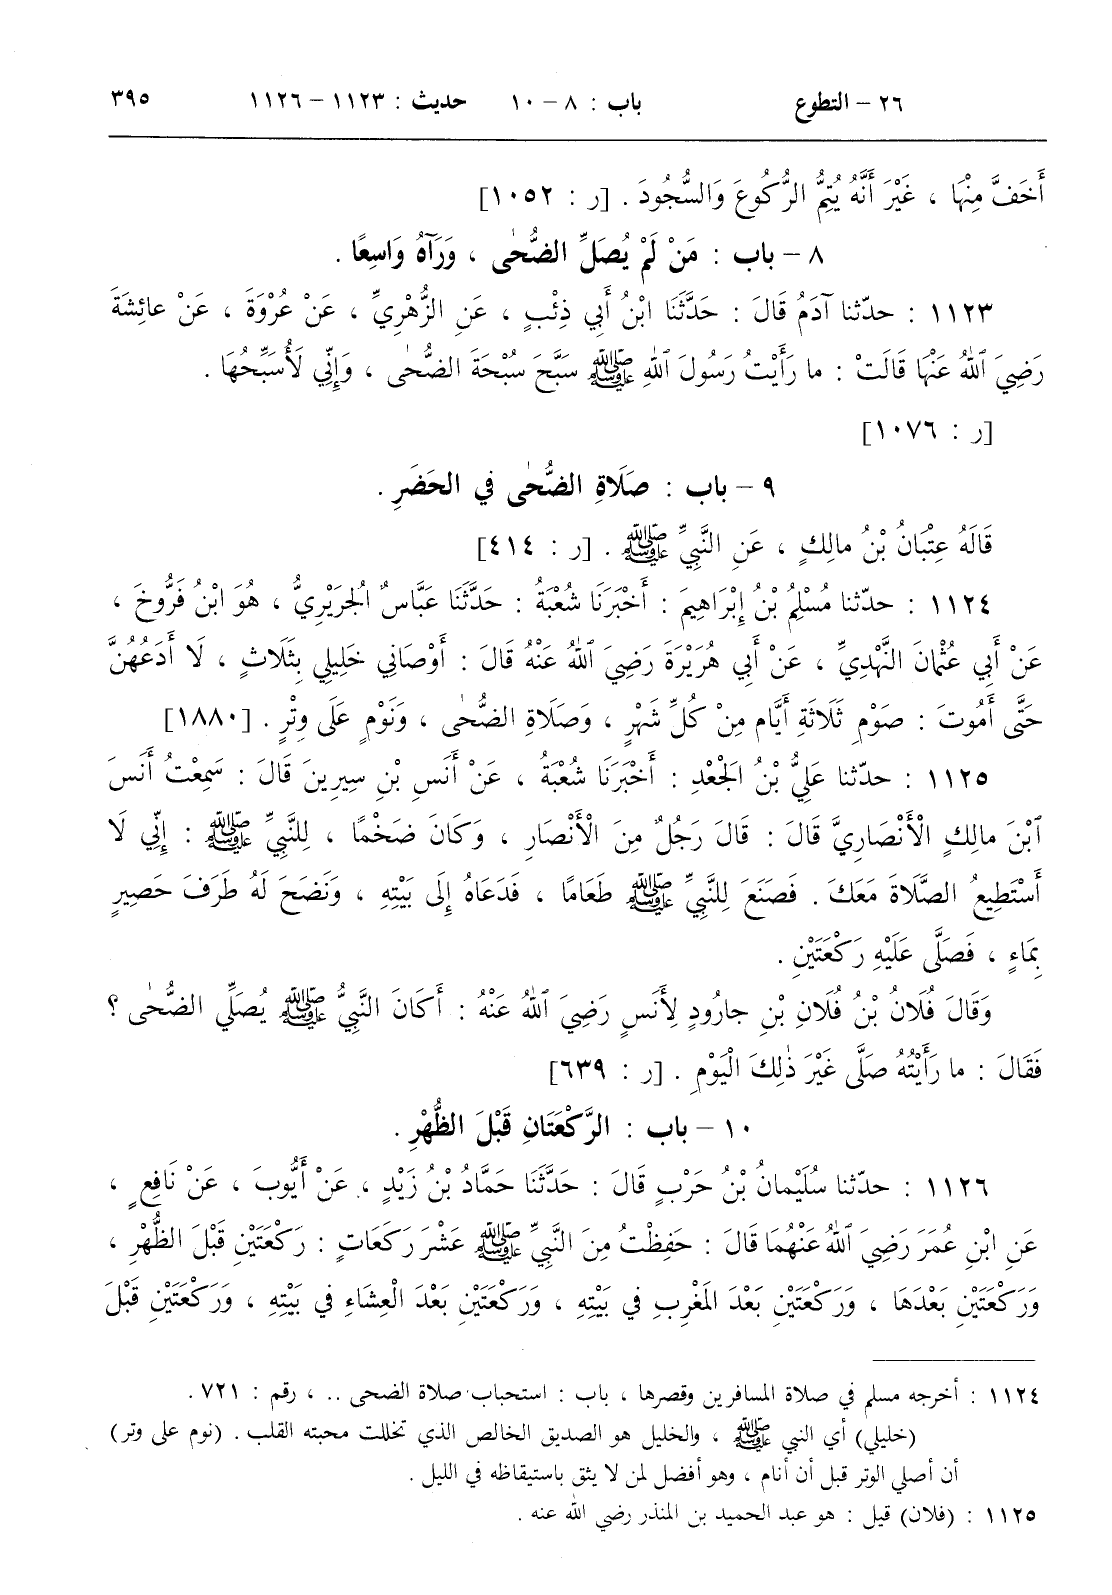 ٢٦ – التطوع باب : ٨ – ١٠ حديث : ١١٢٣ – ١١٢٦ ٣٩٥
أَخَفَّ مِنْهَا ، غَيْرَ أَنَّهُ يُتِمُّ الرُّكُوعَ وَالسُّجُودَ . [ر : ١٠٥٢]
٨ – باب : مَنْ لَمْ يُصَلِّ الضُّحٰى ، وَرَآهُ وَاسِعًا .
١١٢٣ : حدّثنا آدَمُ قَالَ : حَدَّثَنَا ابْنُ أَبِي ذِئْبٍ ، عَنِ الزُّهْرِيِّ ، عَنْ عُرْوَةَ ، عَنْ عائِشَةَ
رَضِيَ ٱللهُ عَنْهَا قَالَتْ : ما رَأَيْتُ رَسُولَ ٱللهِ ﷺ سَبَّحَ سُبْحَةَ الضُّحٰى ، وَإِنِّي لَأُسَبِّحُهَا .
[ر : ١٠٧٦]
٩ – باب : صَلَاةِ الضُّحٰى في الحَضَرِ .
قَالَهُ عِتْبَانُ بْنُ مالِكٍ ، عَنِ النَّبِيِّ ﷺ . [ر : ٤١٤]
١١٢٤ : حدّثنا مُسْلِمُ بْنُ إِبْرَاهِيمَ : أَخْبَرَنَا شُعْبَةُ : حَدَّثَنَا عَبَّاسٌ الجُرَيْرِيُّ ، هُوَ ابْنُ فَرُّوخَ ،
عَنْ أَبِي عُثْمانَ النَّهْدِيِّ ، عَنْ أَبِي هُرَيْرَةَ رَضِيَ ٱللهُ عَنْهُ قَالَ : أَوْصَانِي خَلِيلِي بِثَلَاثٍ ، لَا أَدَعُهُنَّ
حَتَّى أَمُوتَ : صَوْمِ ثَلَاثَةِ أَيَّامٍ مِنْ كُلِّ شَهْرٍ ، وَصَلَاةِ الضُّحٰى ، وَنَوْمٍ عَلَى وِتْرٍ . [١٨٨٠]
١١٢٥ : حدّثنا عَلِيُّ بْنُ الجَعْدِ : أَخْبَرَنَا شُعْبَةُ ، عَنْ أَنَسِ بْنِ سِيرِينَ قَالَ : سَمِعْتُ أَنَسَ
ٱبْنَ مالِكٍ الْأَنْصَارِيَّ قَالَ : قَالَ رَجُلٌ مِنَ الْأَنْصَارِ ، وَكَانَ ضَخْمًا ، لِلنَّبِيِّ ﷺ : إِنِّي لَا
أَسْتَطِيعُ الصَّلَاةَ مَعَكَ . فَصَنَعَ لِلنَّبِيِّ ﷺ طَعَامًا ، فَدَعَاهُ إِلَى بَيْتِهِ ، وَنَضَحَ لَهُ طَرَفَ حَصِيرٍ
بِمَاءٍ ، فَصَلَّى عَلَيْهِ رَكْعَتَيْنِ .
وَقَالَ فُلَانُ بْنُ فُلَانِ بْنِ جارُودٍ لِأَنَسٍ رَضِيَ ٱللهُ عَنْهُ : أَكَانَ النَّبِيُّ ﷺ يُصَلِّي الضُّحٰى ؟
فَقَالَ : ما رَأَيْتُهُ صَلَّى غَيْرَ ذٰلِكَ الْيَوْمِ . [ر : ٦٣٩]
١٠ – باب : الرَّكْعَتَانِ قَبْلَ الظُّهْرِ .
١١٢٦ : حدّثنا سُلَيْمانُ بْنُ حَرْبٍ قَالَ : حَدَّثَنَا حَمَّادُ بْنُ زَيْدٍ ، عَنْ أَيُّوبَ ، عَنْ نَافِعٍ ،
عَنِ ابْنِ عُمَرَ رَضِيَ ٱللهُ عَنْهُمَا قَالَ : حَفِظْتُ مِنَ النَّبِيِّ ﷺ عَشْرَ رَكَعَاتٍ : رَكْعَتَيْنِ قَبْلَ الظُّهْرِ ،
وَرَكْعَتَيْنِ بَعْدَهَا ، وَرَكْعَتَيْنِ بَعْدَ المَغْرِبِ في بَيْتِهِ ، وَرَكْعَتَيْنِ بَعْدَ الْعِشَاءِ في بَيْتِهِ ، وَرَكْعَتَيْنِ قَبْلَ
١١٢٤ : أخرجه مسلم في صلاة المسافرين وقصرها ، باب : استحباب صلاة الضحى .. ، رقم : ٧٢١ .
(خليلي) أي النبي ﷺ ، والخليل هو الصديق الخالص الذي تخللت محبته القلب . (نوم على وتر)
أن أصلي الوتر قبل أن أنام ، وهو أفضل لمن لا يثق باستيقاظه في الليل .
١١٢٥ : (فلان) قيل : هو عبد الحميد بن المنذر رضي الله عنه .